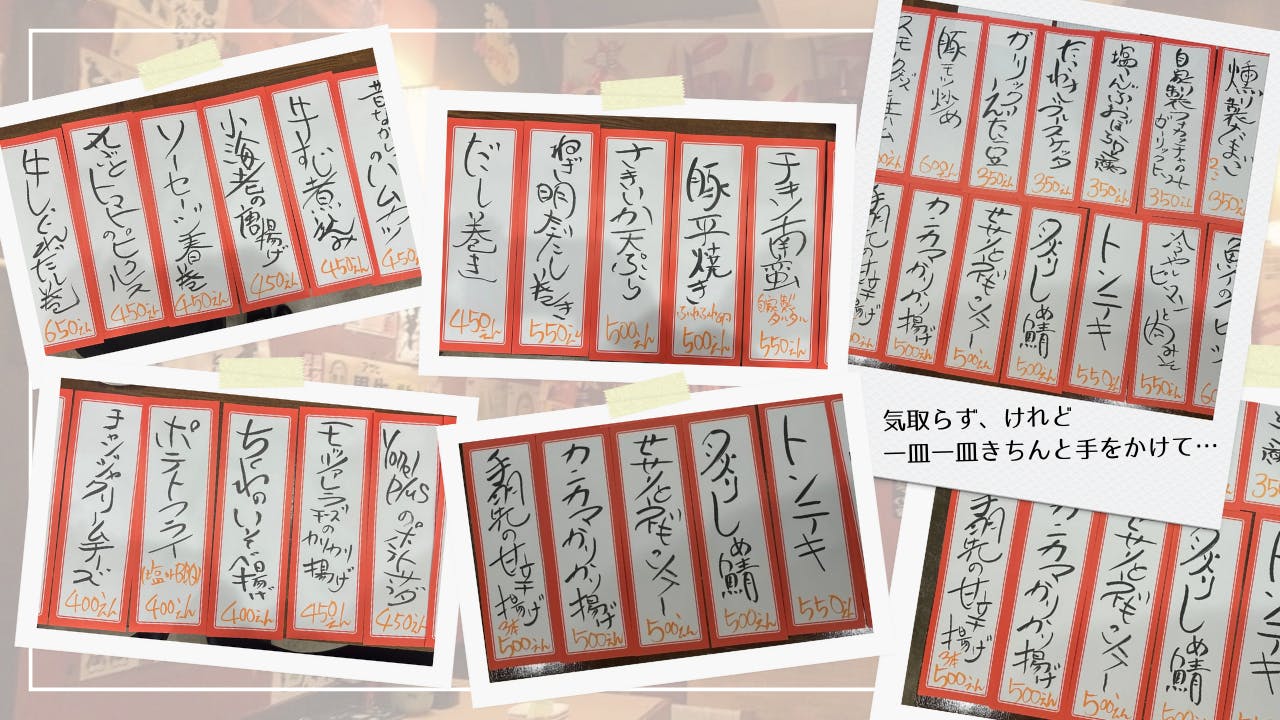 昔なつかしの
ハムカツ
450えん
牛すじ煮込み
450えん
小海老の唐揚げ
450えん
ソーセージ春巻
450えん
丸ごとトマトのピクルス
450えん
牛しぐれだし巻
650えん
チキン南蛮
自家製タルタル
550えん
豚平焼き
ふわふわ卵
500えん
さきいか天ぷら
500えん
ねぎ明太だし巻き
550えん
だし巻き
450えん
燻製たまご
2こ
350えん
自家製
ガーリック
350えん
塩こんぶおぼろ豆腐
350えん
たたみいわし
350えん
ガーリックえだ豆
350えん
豚モツ炒め
600えん
スモークタン
冷やしピーマンと肉みそ
550えん
トンテキ
550えん
炙りしめ鯖
500えん
500えん
カニカマカリカリ揚げ
500えん
手羽先の甘辛揚げ
気取らず、けれど
一皿一皿きちんと手をかけて…
のポテトサラダ
450えん
モッツァレラ
チーズの
カリカリ
揚げ
450えん
ちくわのいそべ揚げ
400えん
ポテトフライ
400えん
チャンジャクリームチーズ
400えん
トンテキ
550えん
炙りしめ鯖
500えん
500えん
カニカマカリカリ揚げ
500えん
手羽先の甘辛揚げ
3本
500えん
トンテキ
炙りしめ鯖
500えん
カニカマカリカリ揚げ
500えん
手羽先の甘辛揚げ
3本
500えん